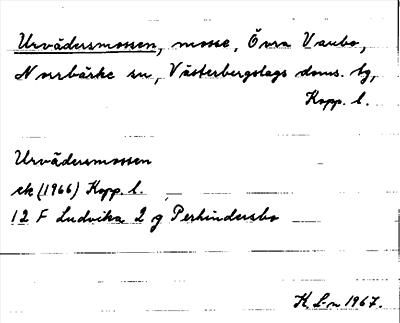 Urvädersmossen, mosse, Övra Vanbo,
Norrbärke sn, Västerbergslags doms. tg,
Kopp. l.
Urvädersmossen
ek (1966) Kopp. l.
12 F Ludvika 2 g Perhindersbo
K. L-n 1967.